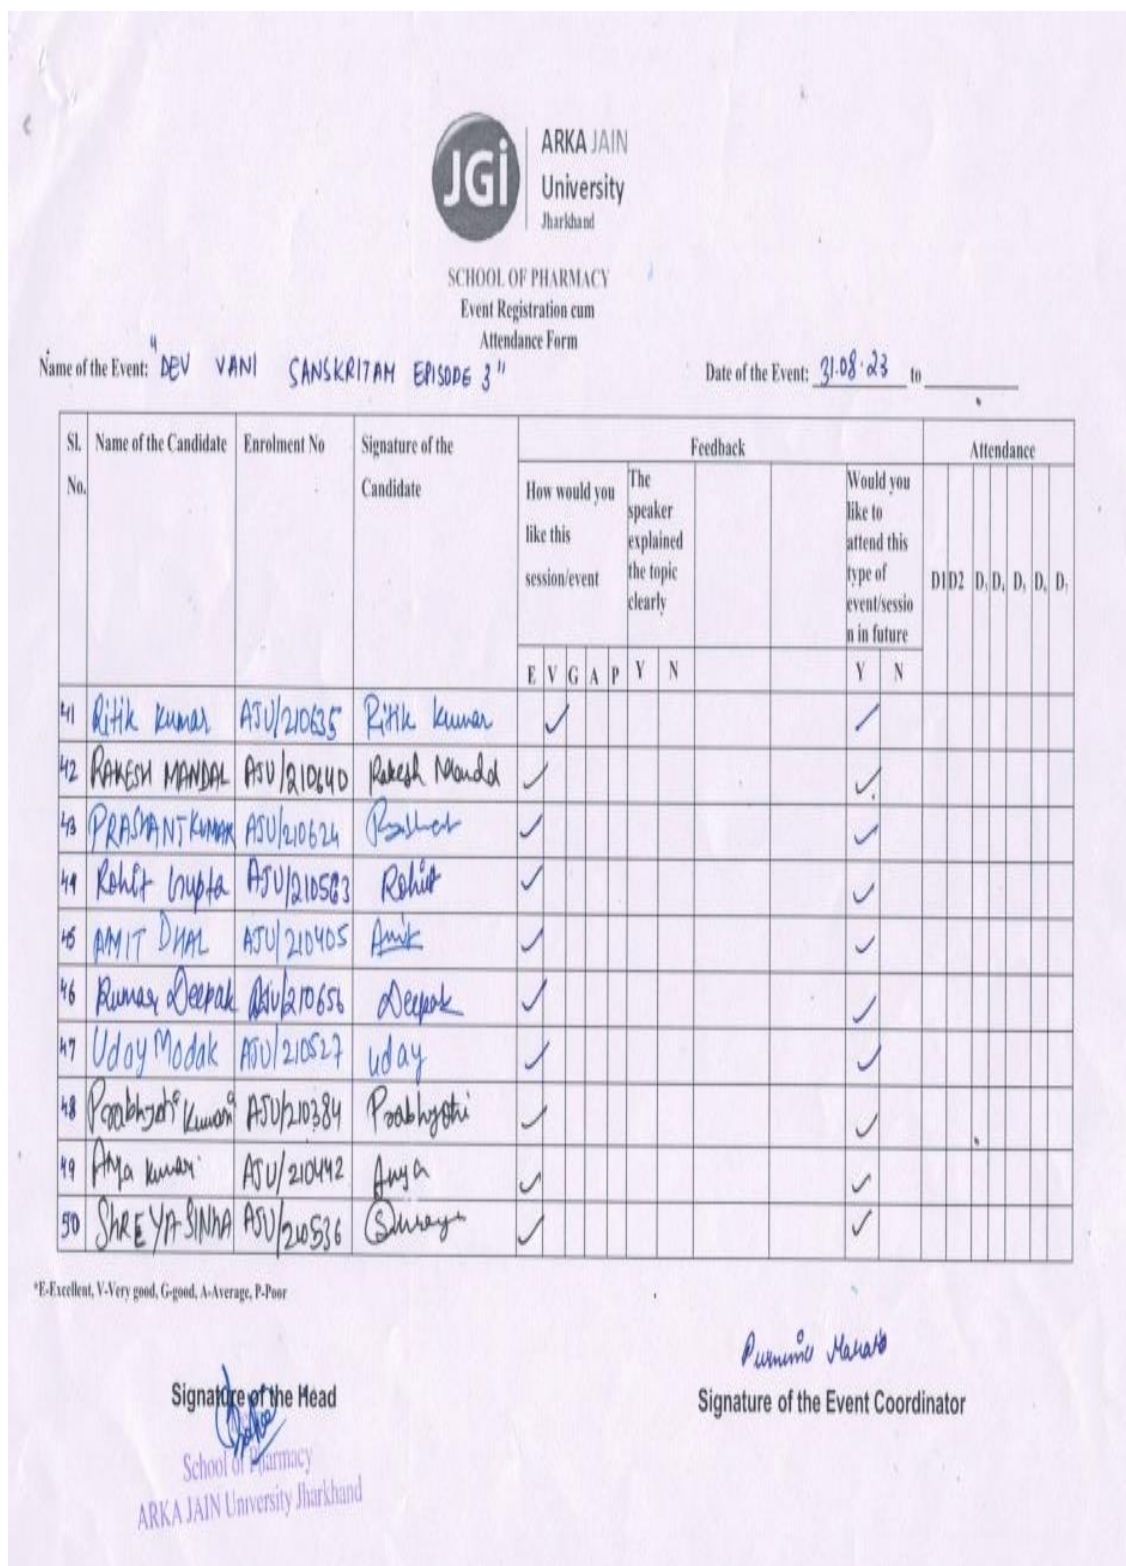 JGi
ARKA JAIN
University
Jharkhand
SCHOOL OF PHARMACY
Event Registration cum
Attendance Form
Name of the Event: "DEV VANI SANSKRITAM EPISODE 3" Date of the Event: 31.08.23 to
Sl. No. Name of the Candidate Enrolment No Signature of the Candidate Feedback Attendance
How would you like this session/event The speaker explained the topic clearly Would you like to attend this type of event/sessio n in future D1 D2 D, D, D, D, D,
E V G A P Y N Y N
41 Ritik Kumar AJU/210635 Ritik Kumar ✓ ✓
42 RAKESH MANDAL AJU/210640 Rakesh Mandal ✓ ✓
43 PRASHANT KUMAR AJU/210624 ✓ ✓
44 Rohit Gupta AJU/210583 Rohit ✓ ✓
45 AMIT DHAL AJU/210405 Amit ✓ ✓
46 Kumar Deepak AJU/210656 Deepak ✓ ✓
47 Uday Modak AJU/210527 uday ✓ ✓
48 Prabhjyoti Kumari AJU/210384 Prabhjyoti ✓ ✓
49 Kumari AJU/210442 ✓ ✓
50 SHREYA SINHA AJU/210536 Shreya ✓ ✓
*E-Excellent, V-Very good, G-good, A-Average, P-Poor
Purnima Mahato
Signature of the Head Signature of the Event Coordinator
School of Pharmacy
ARKA JAIN University Jharkhand